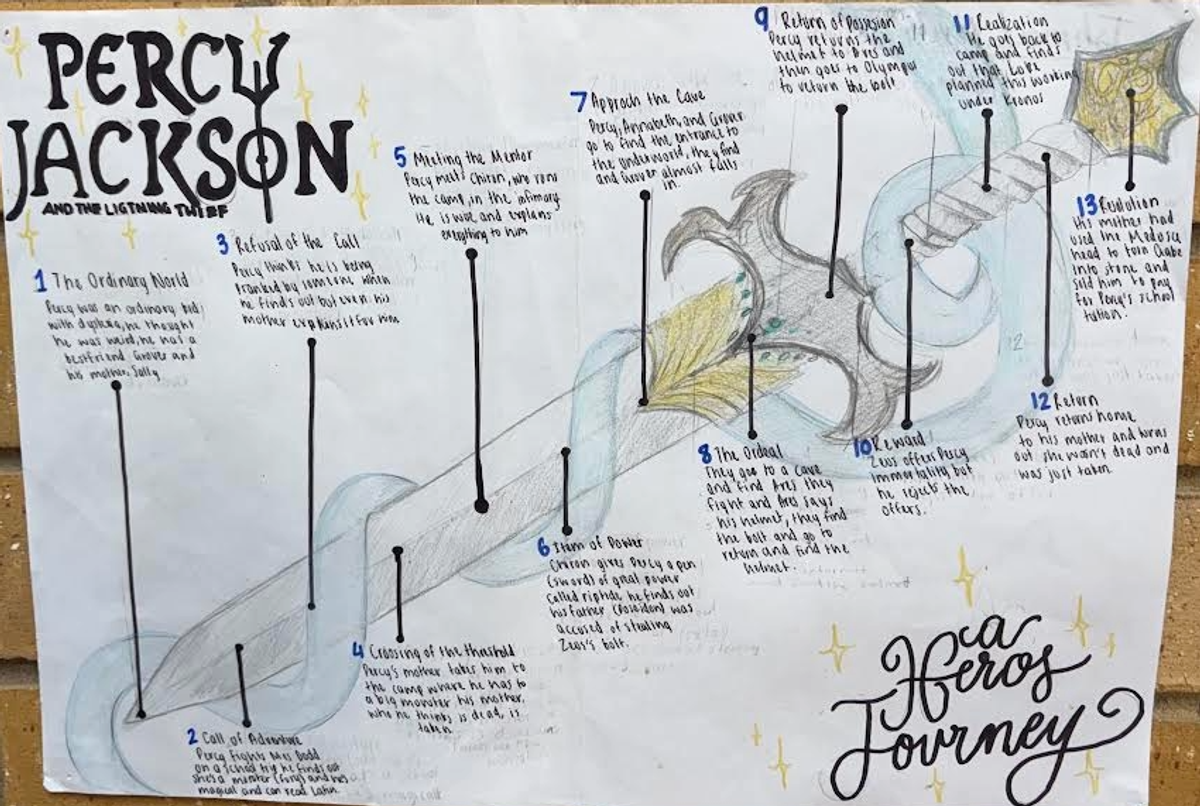 PERCY
JACKSON
AND THE LIGTNING THIEF
1 The Ordinary World
Percy was an ordinary kid
with dyslexia, he thought
he was weird, he has a
bestfriend Grover and
his mother, Sally
2 Call of Adventure
Percy fights Mrs Dodd
on a school trip he finds out
she's a monster (furys) and he's
magical and can read Latin.
3 Refusal of the Call
Percy thinks he is being
pranked by someone when
he finds out but even his
mother explains it for him
4 Croosing of the threshold
Percy's mother takes him to
the camp where he has to
a big monster his mother,
who he thinks is dead, is
taken
5 Meeting the Mentor
Percy meets Chiron, who runs
the camp, in the infimary
He is woe and explains
everything to him
6 Item of Power
Chiron gives Percy a pen
(sword) of great power
called riptide he finds out
his father (Poseidon) was
accused of stealing
Zeus's bolt.
7 Approch the Cave
Percy, Annabeth, and Grover
go to find the entrance to
the underworld, they find
and Grover almost falls
in.
8 The Ordeal
They goo to a cave
and find Ares they
fight and Ares says
his helmet, they find
the bolt and go to
return and find the
helmet.
9 Return of Possesion
Percy returns the
helmet to Ares and
then goes to Olympus
to return the bolt
10 Reward
Zeus offers Percy
immortality but
he rejects the
offers.
11 Realization
He goes back to
camp and finds
out that Luke
planned this working
under Kronos
12 Return
Percy returns home
to his mother and turns
out she wasn't dead and
was just taken
13 Resolution
His mother had
used the Medusa
head to torn Gabe
into stone and
sold him to pay
for Percy's school
tuition.
a
Heros
Journey